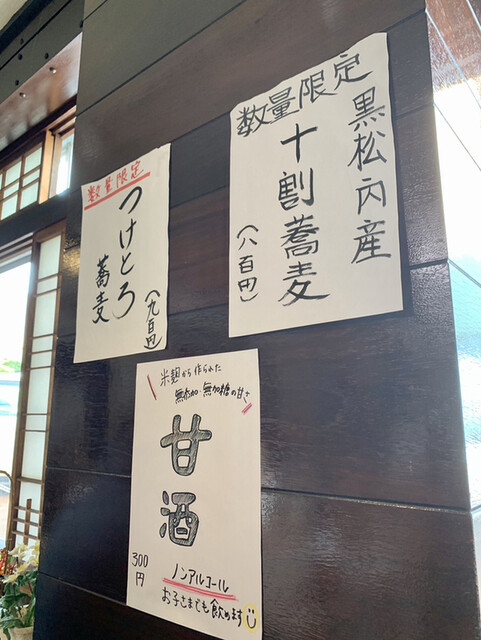 数量限定
黒松内産
十割蕎麦
(八百円)
数量限定
つけとろ
蕎麦
(九百円)
米麹から作られた
無添加・無加糖の甘さ
甘酒
300
円
ノンアルコール
お子さまでも飲めます